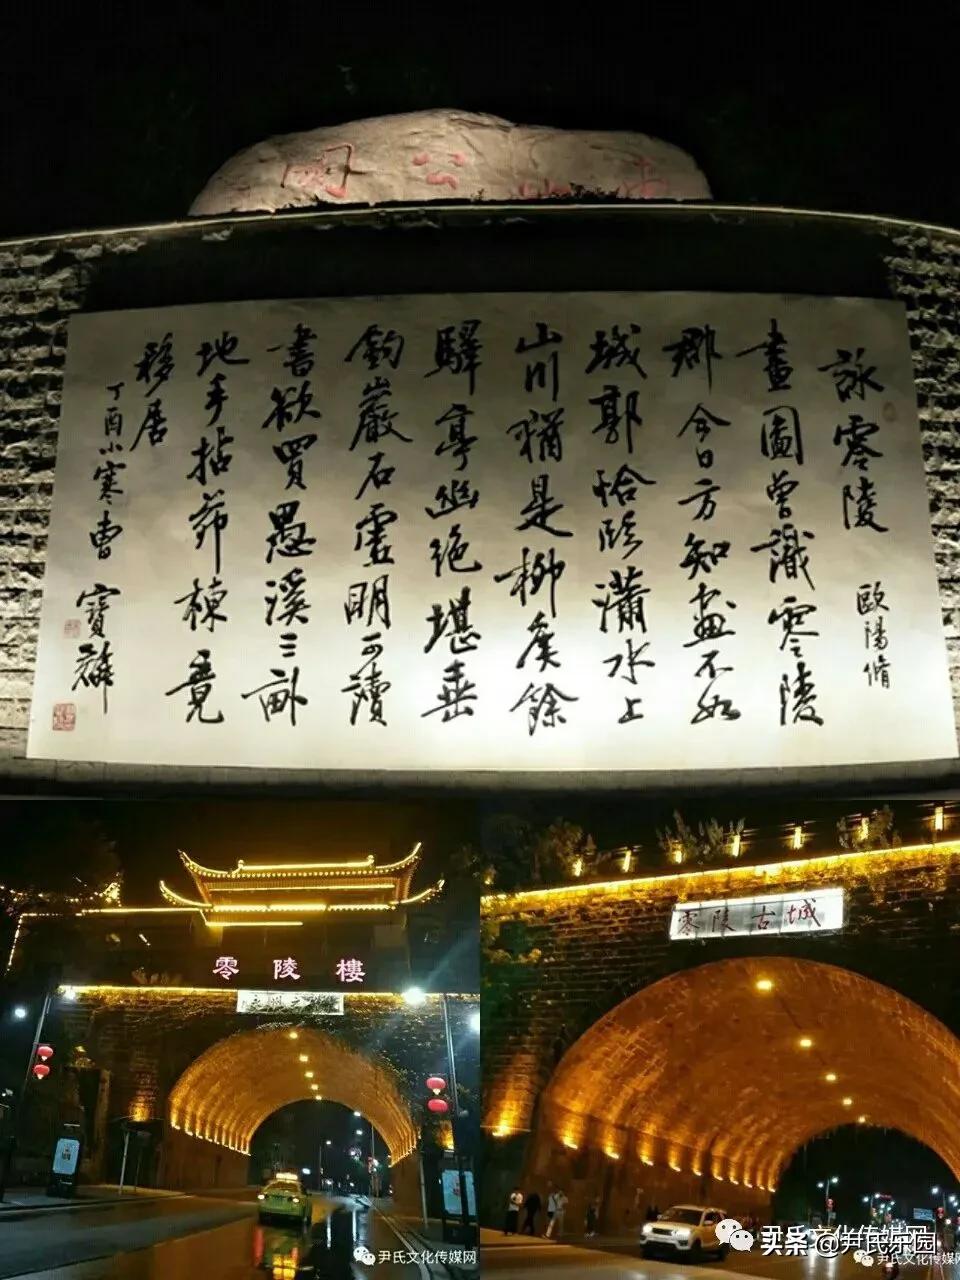 公
詠零陵 歐陽脩
畫圖曾識零陵
郡今日方知畫不如
城郭恰臨瀟水上
山川猶是柳侯餘
驛亭幽絕堪垂
釣巖石虛明可讀
書欲買愚溪三畝
地手拈茆棟竟
移居
丁酉小寒曹寶麟
零陵樓
永州之
尹氏文化传媒网
零陵古城
尹氏文化传媒网
头条 @尹氏乐园